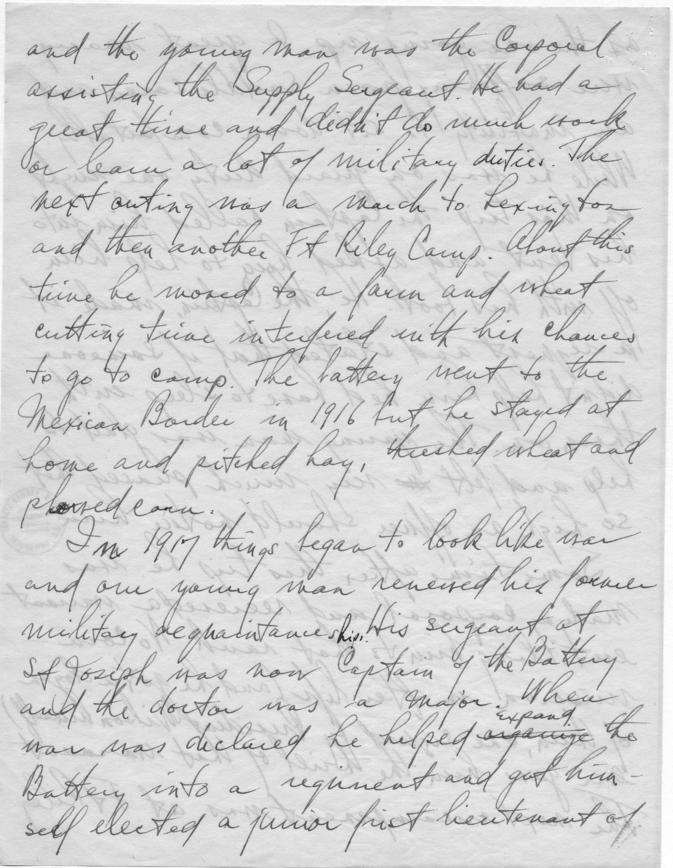 and the young man was the Corporal
assisting the Supply Sergeant. He had a
great time and didn't do much work
or learn a lot of military duties. The
next outing was a march to Lexington
and then another Ft Riley Camp. About this
time he moved to a farm and wheat
cutting time interfered with his chances
to go to camp. The battery went to the
Mexican Border in 1916 but he stayed at
home and pitched hay, threshed wheat and
plowed corn.
In 1917 things began to look like war
and our young man renewed his former
military acquaintanceships. His sergeant at
St Joseph was now Captain of the Battery
and the doctor was a major. When
war was declared he helped organize expand the
Battery into a regiment and got him-
self elected a junior first lieutenant of